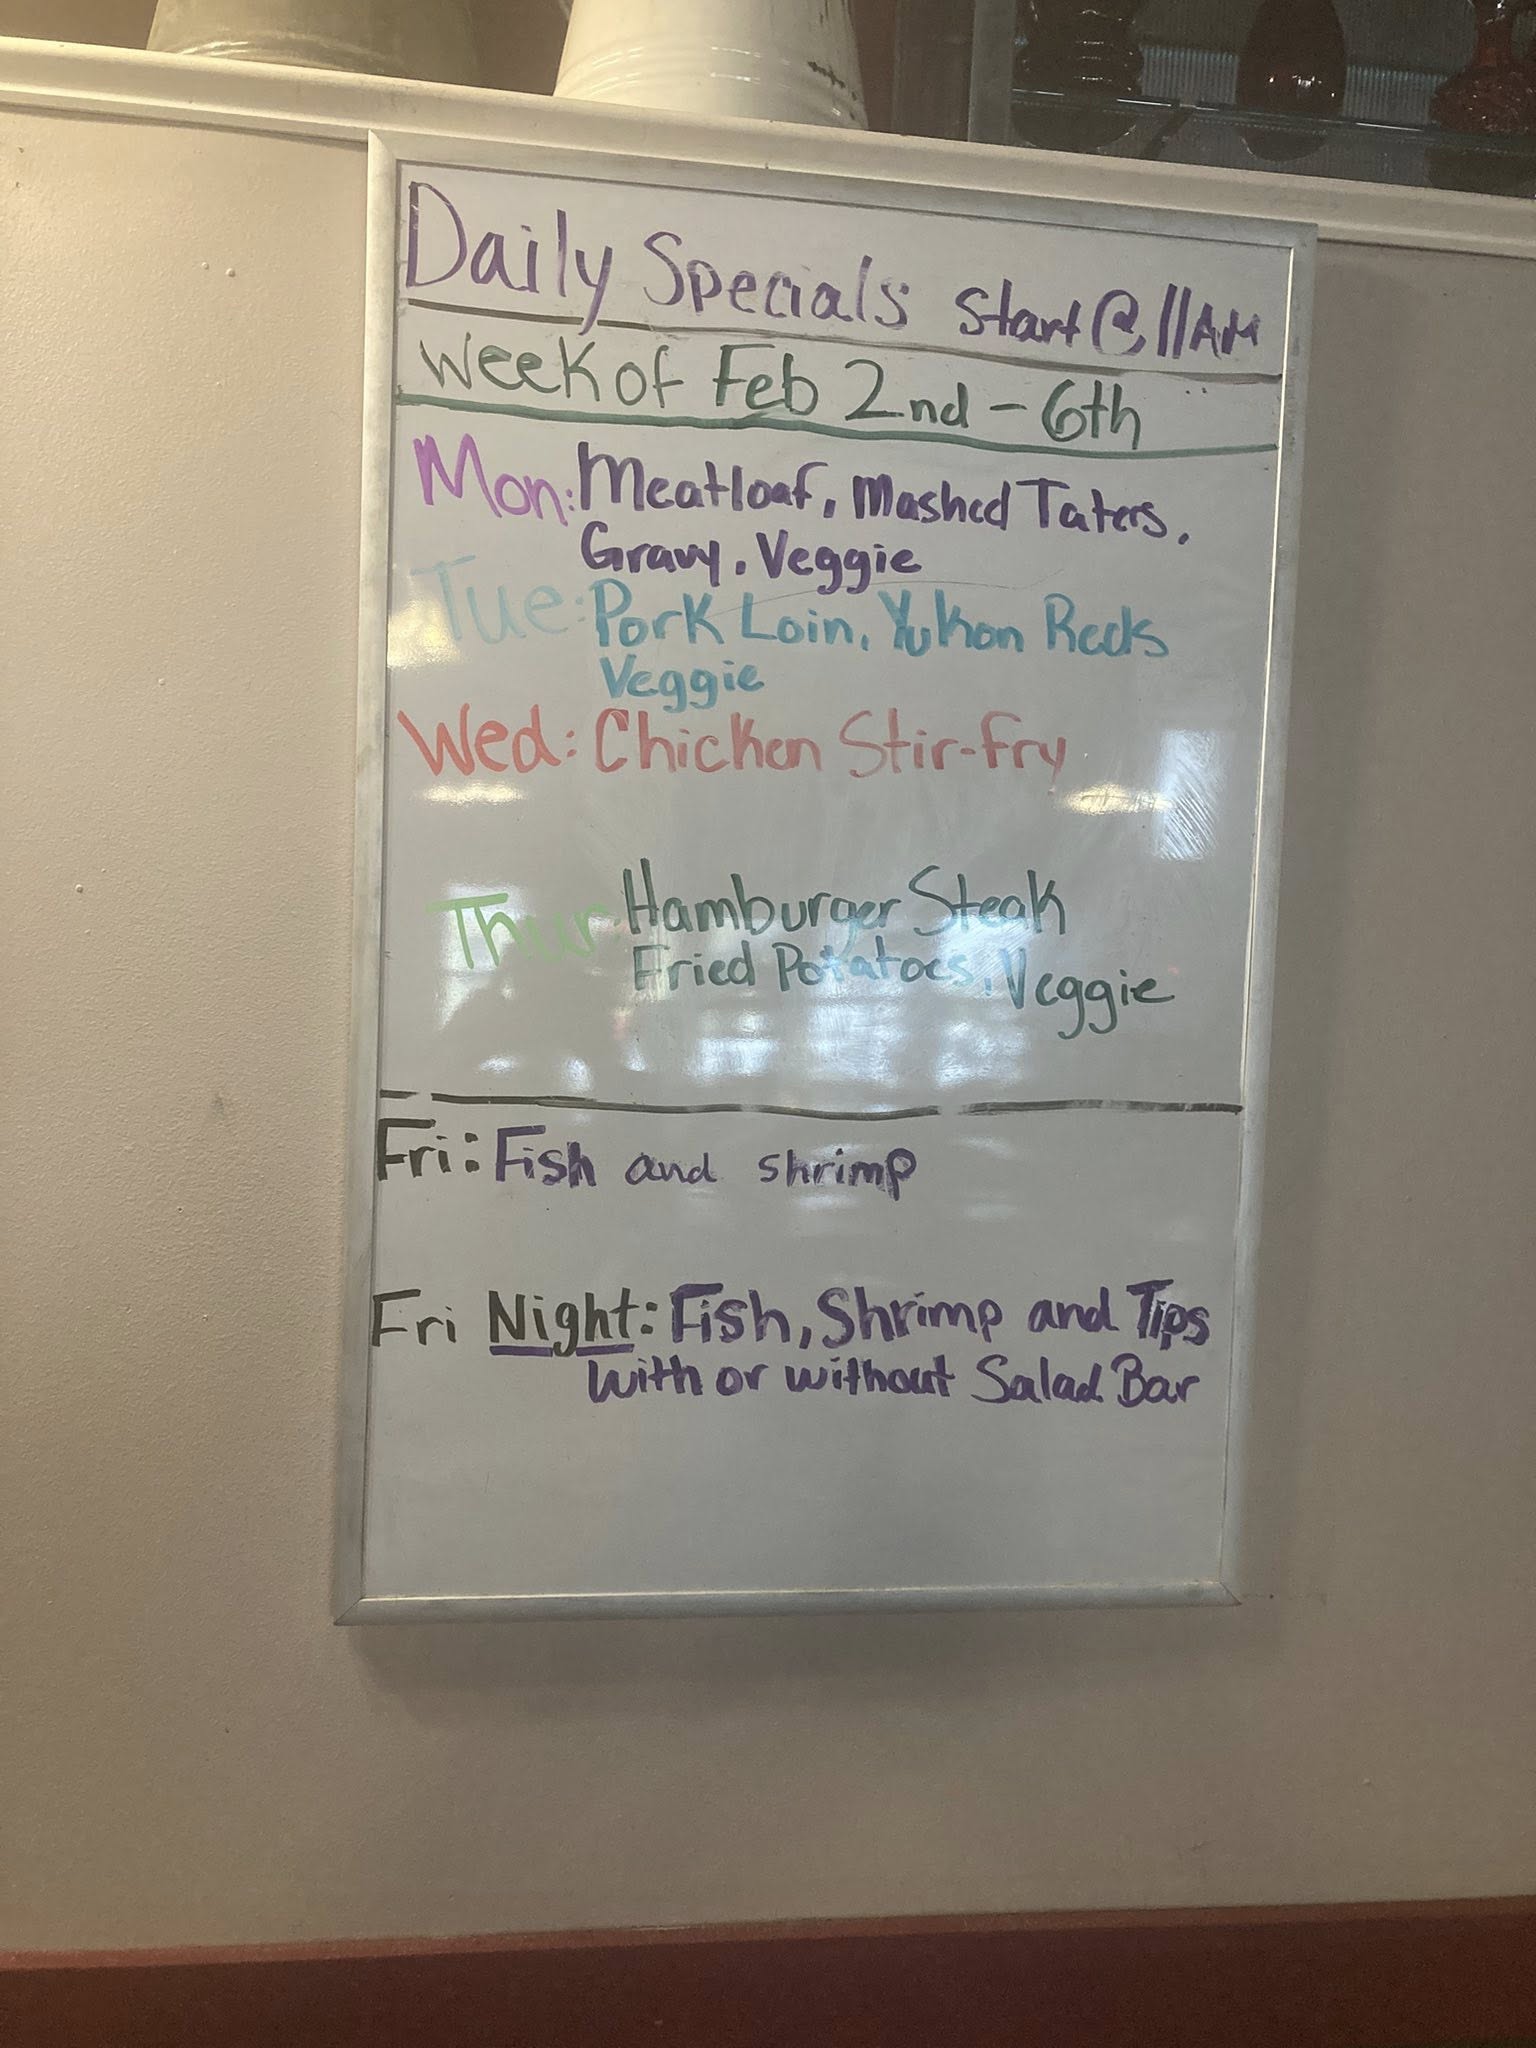 Daily Specials Start @ 11AM
Week of Feb 2nd - 6th
Mon: Meatloaf, Mashed Taters,
Gravy, Veggie
Tue: Pork Loin, Yukon Reds
Veggie
Wed: Chicken Stir-fry
Thur: Hamburger Steak
Fried Potatoes, Veggie
Fri: Fish and shrimp
Fri Night: Fish, Shrimp and Tips
With or without Salad Bar